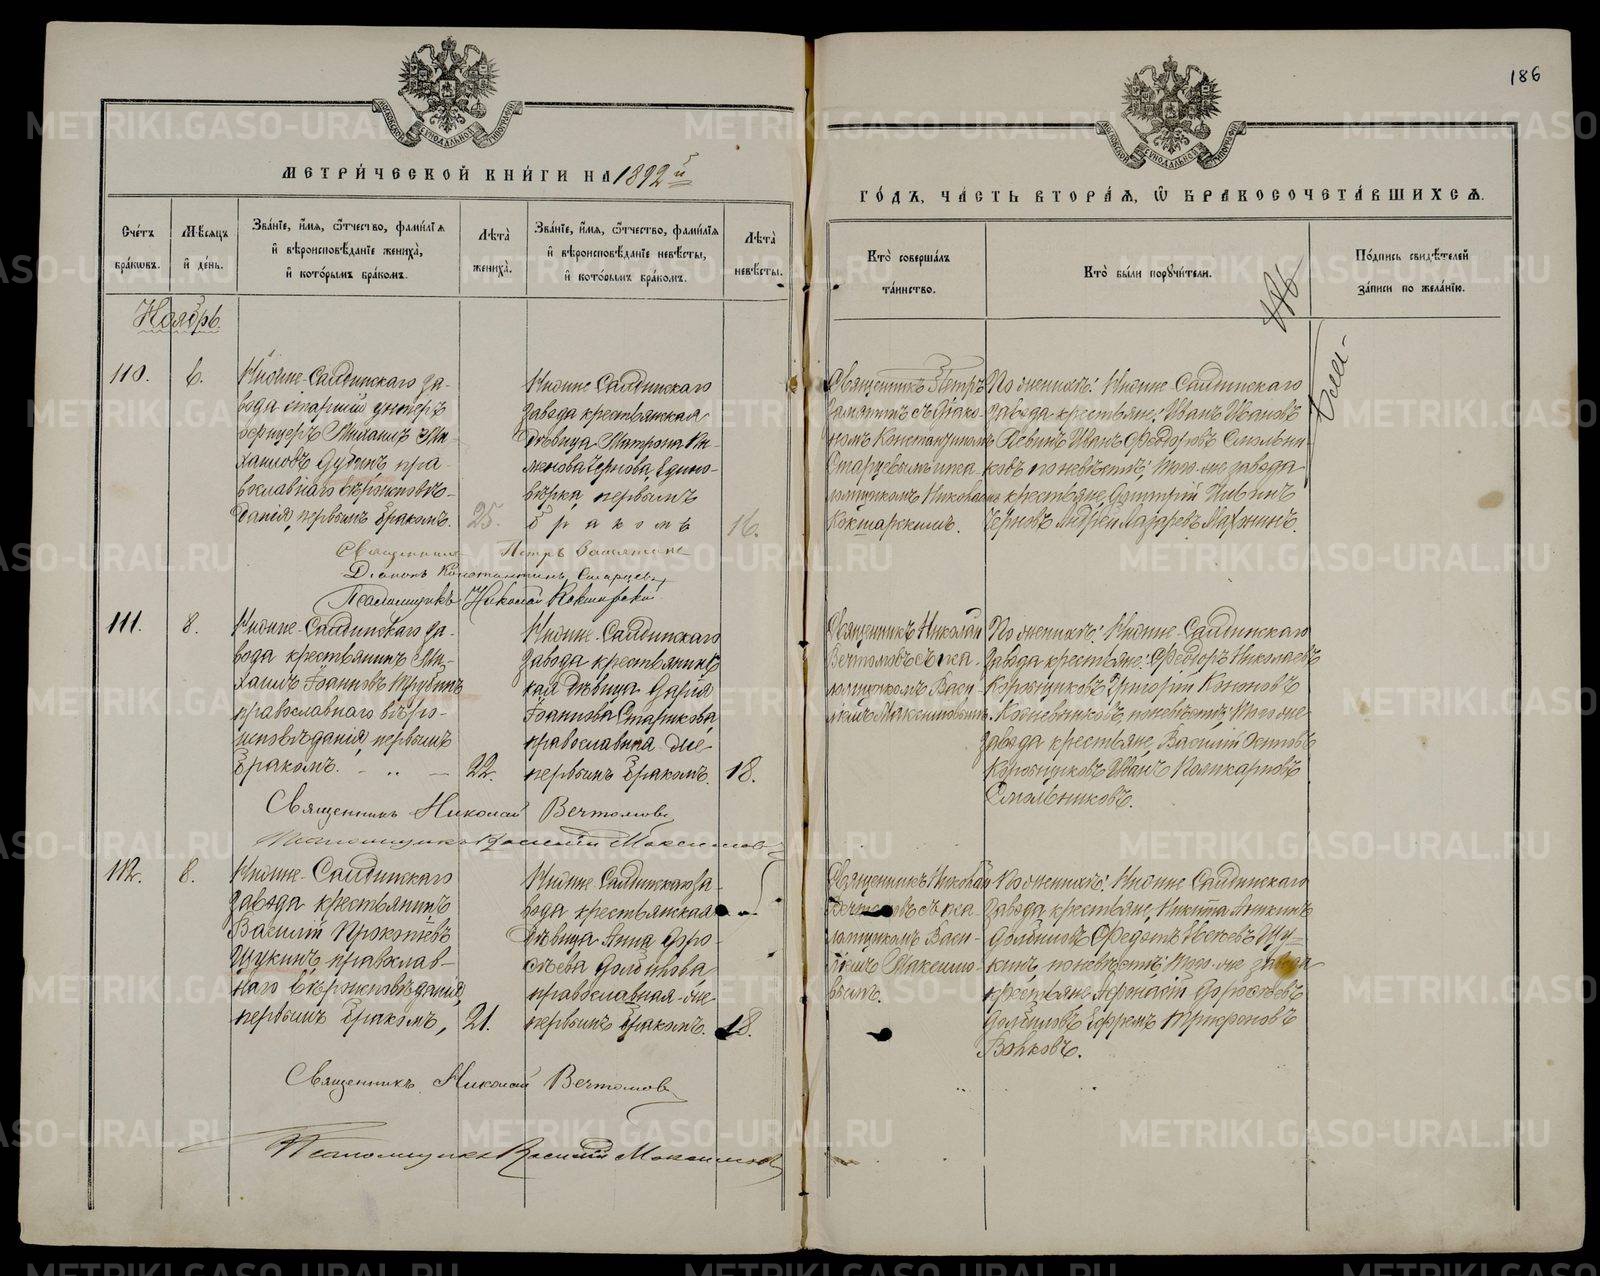 186
МОСКОВСКОЙ СѴНОДАЛЬНОЙ ТИПОГРАФІИ
МОСКОВСКОЙ СѴНОДАЛЬНОЙ ТИПОГРАФІИ
МЕТРИ́ЧЕСКОЙ КНИ́ГИ НА 1892й
ГО́ДЪ, ЧА́СТЬ ВТОРА́Я, Ѽ БРАКОСОЧЕТА́ВШИХСЯ.
Сче́тъ бра́кωвъ.
Мѣ́сяцъ и҆ де́нь.
Зва́нїе, и҆́мя, ѻ҆́тчество, фами́лїя и҆ вѣроисповѣ́данїе жениха̀, и҆ кото́рымъ бра́комъ.
Лѣта̀ жениха̀.
Зва́нїе, и҆́мя, ѻ҆́тчество, фами́лїя и҆ вѣроисповѣ́данїе невѣ́сты, и҆ кото́рымъ бра́комъ.
Лѣта̀ невѣ́сты.
Кто̀ соверша́лъ та́инство.
Кто̀ бы́ли порꙋчи́тели.
По́дпись свидѣ́телей за́писи по жела́нїю.
Ноябрь
110.
6.
Нижне-Салдинскаго за-
вода старшій унтеръ
офицеръ Михаилъ Ми-
хаиловъ Дудинъ пра-
вославнаго вѣроисповѣ-
данія, первымъ бракомъ.
25.
Нижне-Салдинскаго
завода крестьянская
дѣвица Матрона Пи-
менова Чернова, едино-
вѣрка, первымъ
бракомъ
16.
Священникъ Петръ
Замятинъ съ діако-
номъ Константиномъ
Старцевымъ и пса-
ломщикомъ Николаемъ
Кокшарскимъ.
По женихѣ: Нижне-Салдинскаго
завода крестьяне: Иванъ Ивановъ
Иванъ Ѳедоровъ Смольни-
ковъ по невѣстѣ: того-же завода
крестьяне, Дмитрій
Черновъ Андрей Лазаревъ Махонинъ.
Священникъ Петръ Замятинъ
Діаконъ Константинъ Старцевъ
Псаломщикъ Николай Кокшарскій
111.
8.
Нижне-Салдинскаго за-
вода крестьянинъ Ми-
хаилъ Іоанновъ Трубинъ
православнаго вѣро-
исповѣданія, первымъ
бракомъ.
22.
Нижне-Салдинскаго
завода крестьянс-
кая дѣвица Дарія
Іоаннова Старикова,
православна же
первымъ бракомъ.
18.
Священникъ Николай
Вечтомовъ съ пса-
ломщикомъ Васи-
ліемъ Максимовымъ.
По женихѣ: Нижне-Салдинскаго
завода крестьяне: Ѳедоръ Николаевъ
Коробщиковъ Григорій Кононовъ
по невѣстѣ: того-же
завода крестьяне, Василій Осиповъ
Коробщиковъ Иванъ Поликарповъ
Смольниковъ.
Священникъ Николай Вечтомовъ
Псаломщикъ Василій Максимовъ
112.
8.
Нижне-Салдинскаго
завода крестьянинъ
Василій Прокопіевъ
Щукинъ, православ-
наго вѣроисповѣданія,
первымъ бракомъ,
21.
Нижне-Салдинскаго за-
вода крестьянская
дѣвица Анна Доро-
ѳѣева Долбилова,
православная-же
первымъ бракомъ.
18.
Священникъ Николай
Вечтомовъ съ пса-
ломщикомъ Васи-
ліемъ Максимо-
вымъ.
По женихѣ: Нижне Салдинскаго
завода крестьяне, Никита Аникинъ
Долбиловъ Ѳедотъ Щу-
кинъ по невѣстѣ: того-же завода
крестьяне Аѳонасій Дороѳѣевъ
Долбиловъ Ефремъ Трифоновъ
Волковъ.
Священникъ Николай Вечтомовъ
Псаломщикъ Василій Максимовъ
METRIKI.GASO-URAL.RU